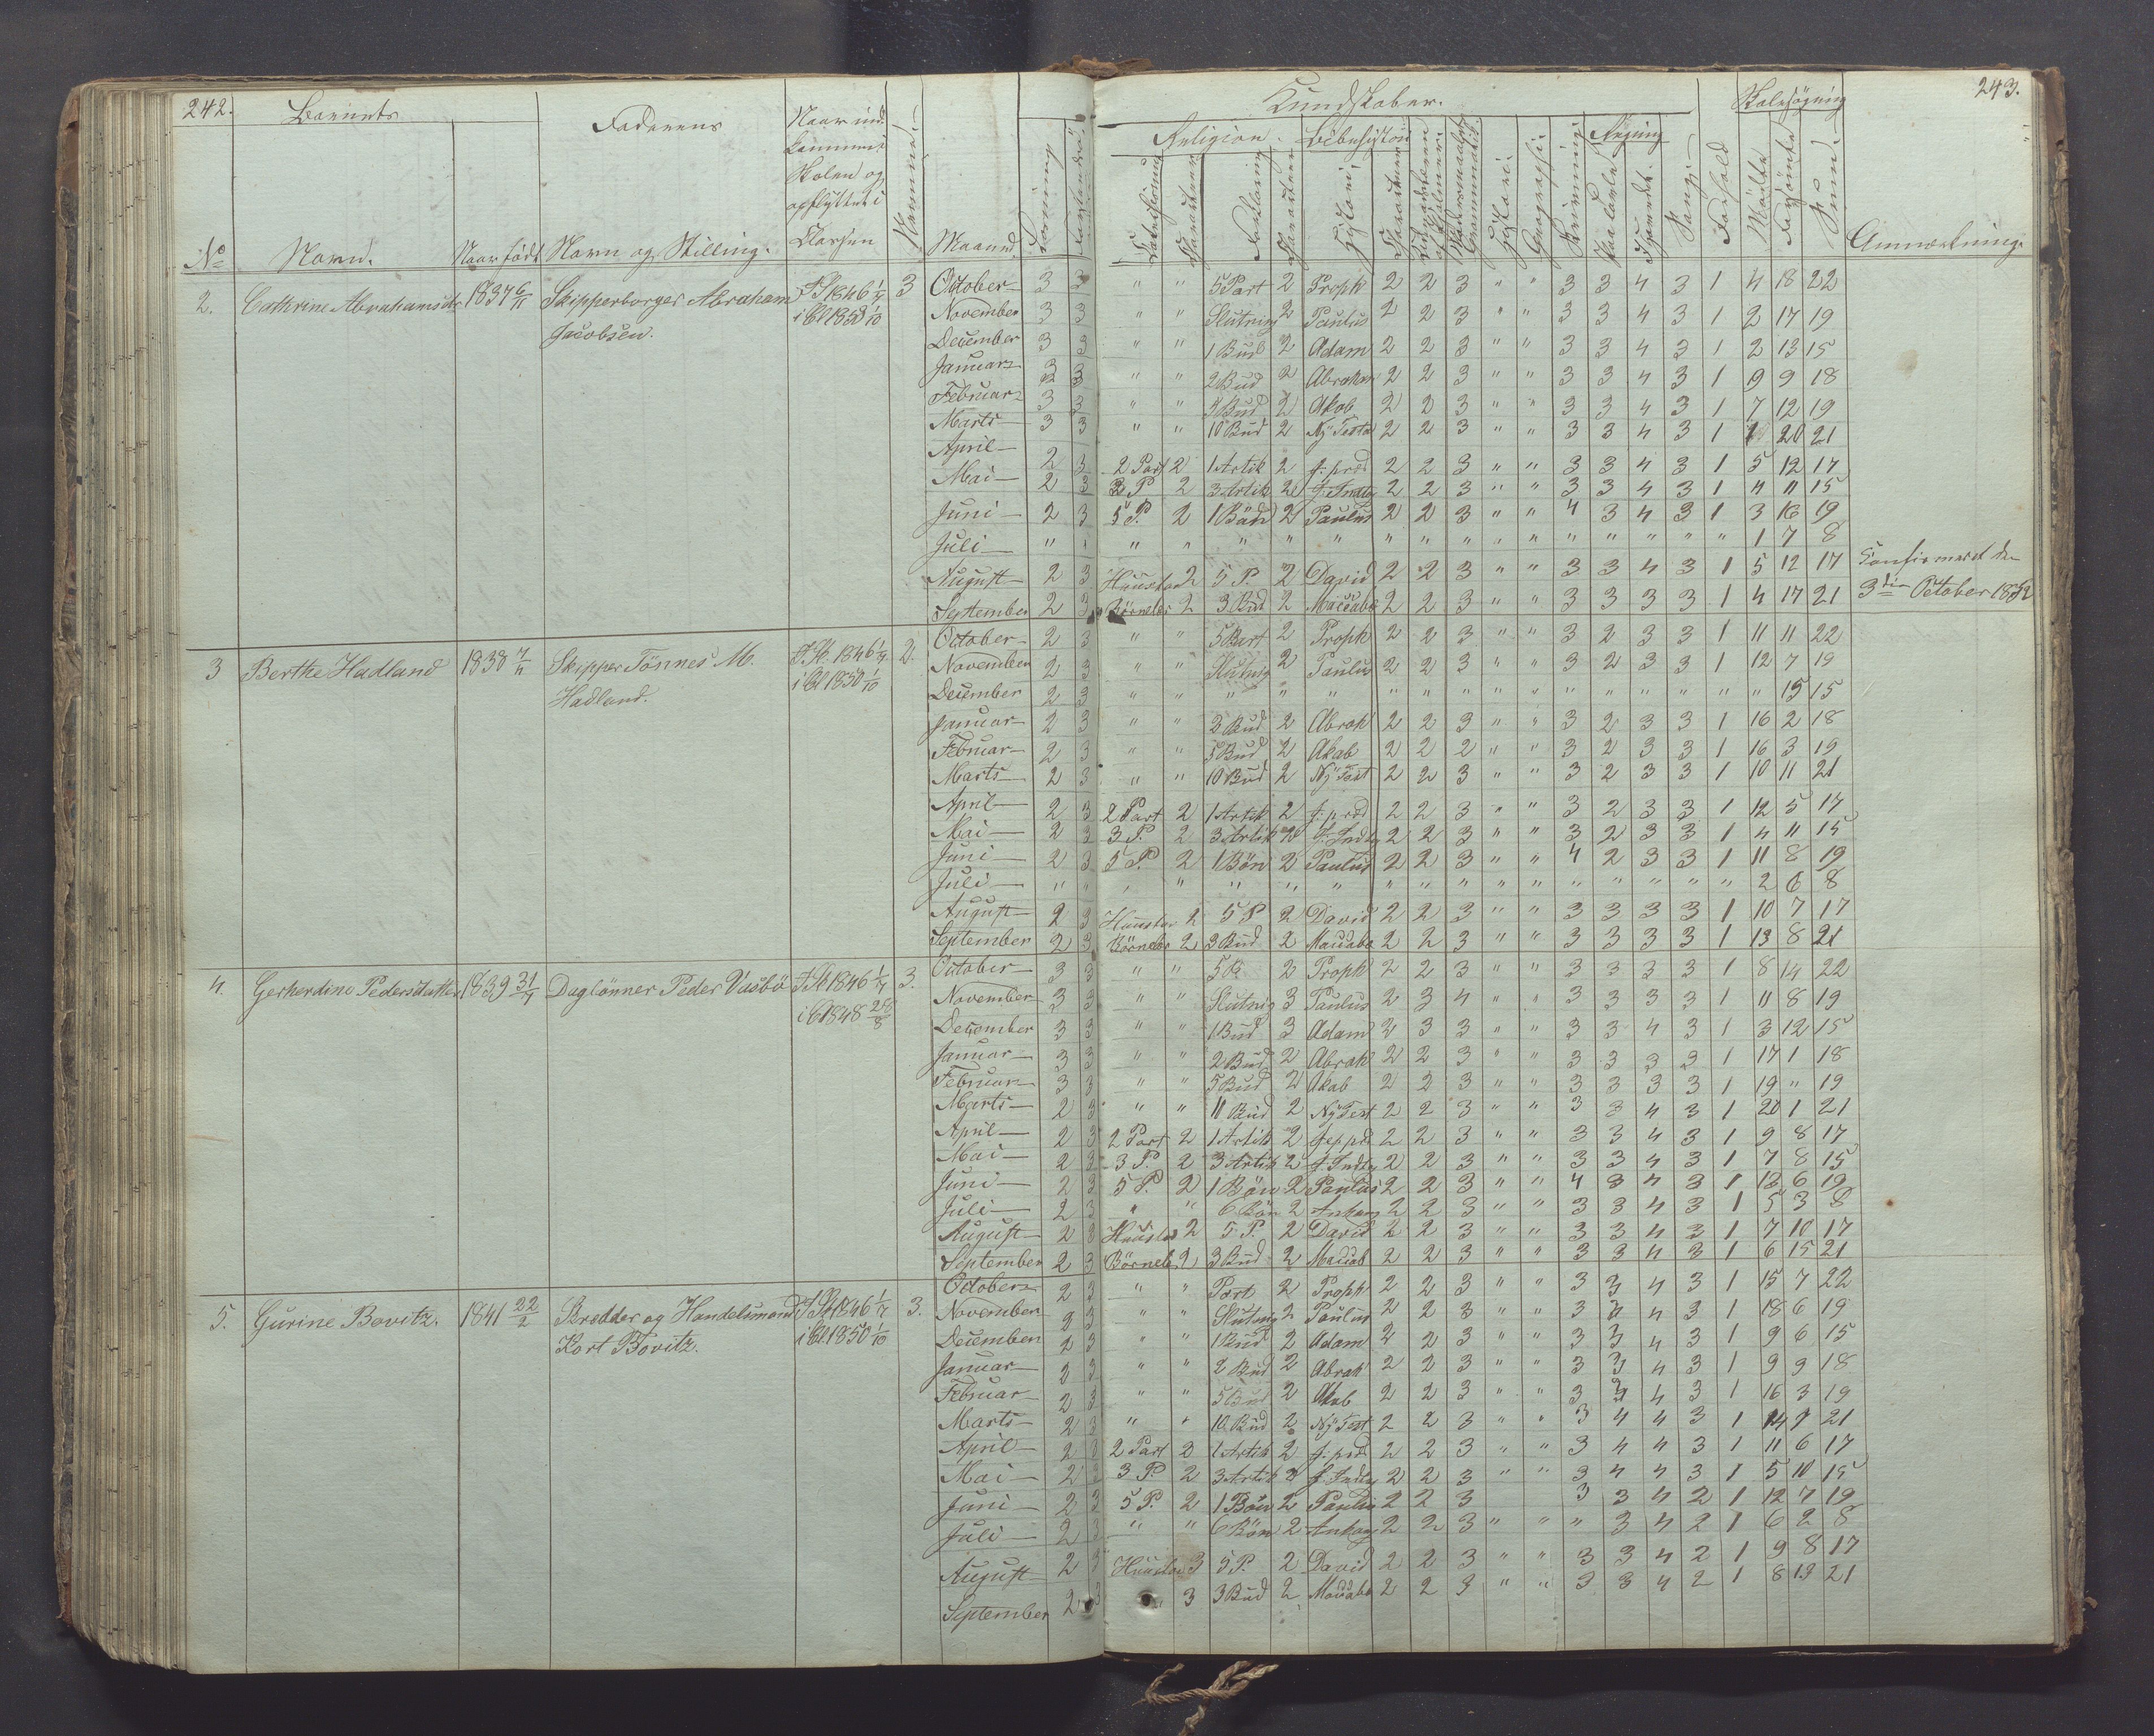 242.
Barnets
Faderens
Naar ind-
kommen i
Skolen og
opflyttet i
Classen
Maaned
No
Navn.
Naar født
Navn og Stilling.
Kundskaber.
Religion.
Bibelhistorie
Regning
Skolesøgning
243.
Anmærkning.
Historie
Geographie
Skrivning
Sang
Forhold
Mødte
Forsømte
Sum
2. Cathrine Abrahamsdr 1837 6/11 Skipperborger Abraham 1846 1/7 3
Jacobsen.
October 3 3 " " 5 Part 2 Proph 2 2 3 " " 3 3 4 3 1 4 18 22
November 3 3 " " Slutning 2 Paulus 2 2 3 " " 3 3 4 3 1 2 17 19
December 3 3 " " 1 Bud 2 Adam 2 2 3 " " 3 3 4 3 1 2 13 15
Januar 3 3 " " 2 Bud 2 Abraham 2 2 3 " " 3 3 4 3 1 9 9 18
Februar 3 3 " " 5 Bud 2 Akab 2 2 3 " " 3 3 4 3 1 7 12 19
Marts 3 3 " " 10 Bud 2 Ny Testa 2 2 3 " " 3 3 4 3 1 1 20 21
April 2 3 2 Part 2 1 Artik 2 J. præd 2 2 3 " " 3 3 4 3 1 5 12 17
Mai 2 3 3 P. 2 3 Artik 2 J. Indtog 2 2 3 " " 3 3 4 3 1 4 11 15
Juni 2 3 5 P. 2 1 Bön 2 Paulus 2 2 3 " " 4 3 4 3 1 3 16 19
Juli " " " " " " " " " " " " " " " " " 1 7 8
August 2 3 Huustav 2 5 P. 2 David 2 2 3 " " 3 3 4 3 1 5 12 17 Confirmeret den
September 2 3 Börnelær 2 3 Bud 2 Maccabæ 2 2 3 " " 3 3 3 3 1 4 17 21 3die October 1852
3 Berthe Hadland 1838 7/11 Skipper Tönnes M. 1846 1/7 2.
Hadland. i Cl 1850 1/10
October 2 3 " " 5 Part 2 Proph 2 2 3 " " 3 2 3 3 1 11 11 22
November 2 3 " " Slutnig 2 Paulus 2 2 3 " " 3 2 3 3 1 12 7 19
December 2 3 " " " " " " " " " " " " " " " " 15 15
Januar 2 3 " " 2 Bud 2 Abrah 2 2 3 " " 3 2 3 3 1 16 2 18
Februar 2 3 " " 5 Bud 2 Akab 2 2 2 " " 3 2 3 3 1 16 3 19
Marts 2 3 " " 10 Bud 2 Ny Test 2 2 3 " " 3 2 3 3 1 10 11 21
April 2 3 2 Part 2 1 Artik 2 J. præd 2 2 3 " " 3 2 3 3 1 12 5 17
Mai 2 3 3 P. 2 3 Artik 2 J. Indtg 2 2 3 " " 3 2 3 3 1 4 11 15
Juni 2 3 5 P. 2 1 Bön 2 Paulus 2 2 3 " " 4 2 3 3 1 11 8 19
Juli " " " " " " " " " " " " " " " " " 2 6 8
August 2 3 Huustav 2 5 P 2 David 2 2 3 " " 3 3 3 3 1 10 7 17
September 2 3 Börnelær 2 3 Bud 2 Maccabæ 2 2 3 " " 3 3 3 3 1 13 8 21
4. Gerherdine Pedersdatter 1839 31/7 Daglönner Peder Vasbö 1846 1/7 3.
i Cl 1848 28/8
October 3 3 " " 5 P. 2 Proph 2 2 3 " " 3 3 3 3 1 8 14 22
November 3 3 " " Slutnig 3 Paulus 2 3 4 " " 3 3 3 3 1 11 8 19
December 3 3 " " 1 Bud 3 Adam 2 3 3 " " 3 3 4 3 1 3 12 15
Januar 3 3 " " 2 Bud 2 Abrah 2 2 3 " " 3 3 3 3 1 17 1 18
Februar 3 3 " " 5 Bud 2 Akab 2 2 3 " " 3 3 3 3 1 19 " 19
Marts 2 3 " " 11 Bud 2 Ny Test 2 2 3 " " 3 3 4 3 1 20 1 21
April 2 3 2 Part 2 1 Artik 2 2 2 3 " " 3 3 4 3 1 9 8 17
Mai 2 3 3 P. 2 3 Artik 2 J. Indtg 2 2 3 " " 3 3 4 3 1 7 8 15
Juni 2 3 5 P. 2 1 Bön 2 Paulus 2 2 3 " " 4 3 4 3 1 13 6 19
Juli 2 3 " " 6 Bön 2 2 2 3 " " 3 3 4 3 1 5 3 8
August 2 3 Huustav 2 5 P. 2 David 2 2 3 " " 3 3 4 3 1 7 10 17
September 2 3 Börnelæ 2 3 Bud 2 Maccab 2 2 3 " " 3 3 4 3 1 6 15 21
5. Gurine Bovitz. 1841 22/2 Skredder og Handelsmand 1846 1/7 3.
Kort Bovitz. i Cl 1850 1/10
October 2 3 " " Part 2 Proph 2 2 3 " " 3 3 4 3 1 15 7 22
November 2 3 " " Slutnig 2 Paulus 2 2 3 " " 3 4 3 1 18 6 19
December 2 3 " " 1 Bud 2 Adam 2 2 3 " " 3 3 4 3 1 9 6 15
Januar 2 3 " " 2 Bud 2 Abrah 2 2 3 " " 3 3 4 3 1 9 9 18
Februar 2 3 " " 5 Bud 2 Akab 2 2 3 " " 3 4 3 1 16 3 19
Marts 2 3 " " 10 Bud 2 Ny Test 2 2 3 " " 3 4 4 3 1 14 7 21
April 2 3 2 Part 2 1 Artik 2 J. præd 2 2 3 " " 3 4 4 3 1 11 6 17
Mai 2 3 3 P. 2 3 Artik 2 J. Indtg 2 2 3 " " 3 4 4 3 1 5 10 15
Juni 2 3 5 P. 2 1 Bön 2 Paulus 2 2 3 3 3 4 2 1 12 7 19
Juli 2 3 " " 6 Bön 2 2 2 3 " " " 3 4 2 1 6 2 8
August 2 3 Huustav 3 5 P. 2 David 2 2 3 " " 3 3 4 2 1 9 8 17
September 2 3 3 3 Bud 2 Maccabæ 2 2 3 " " 3 3 4 2 1 8 13 21